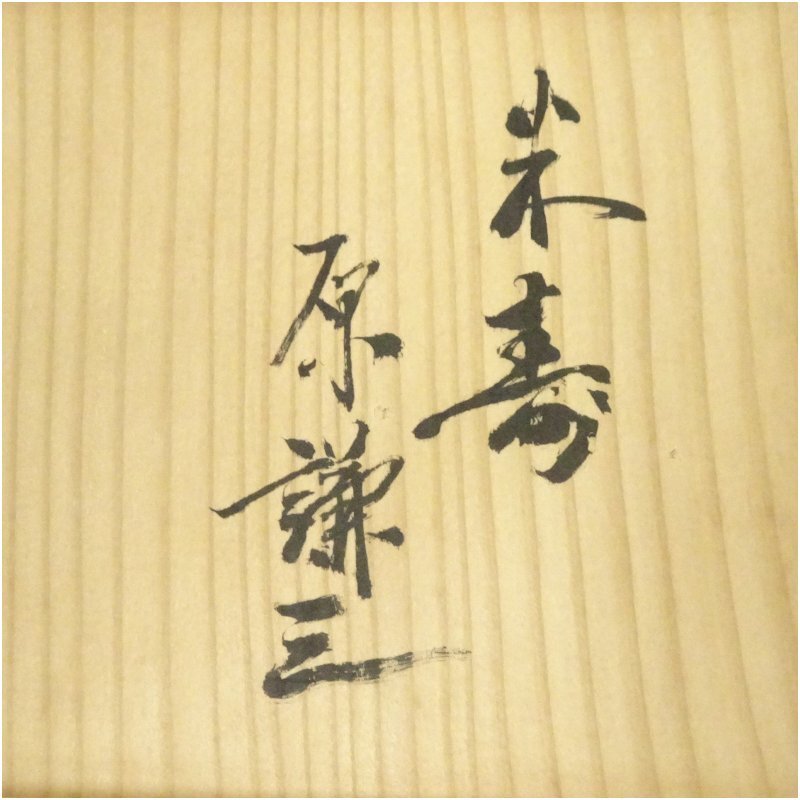 米寿
原謙三